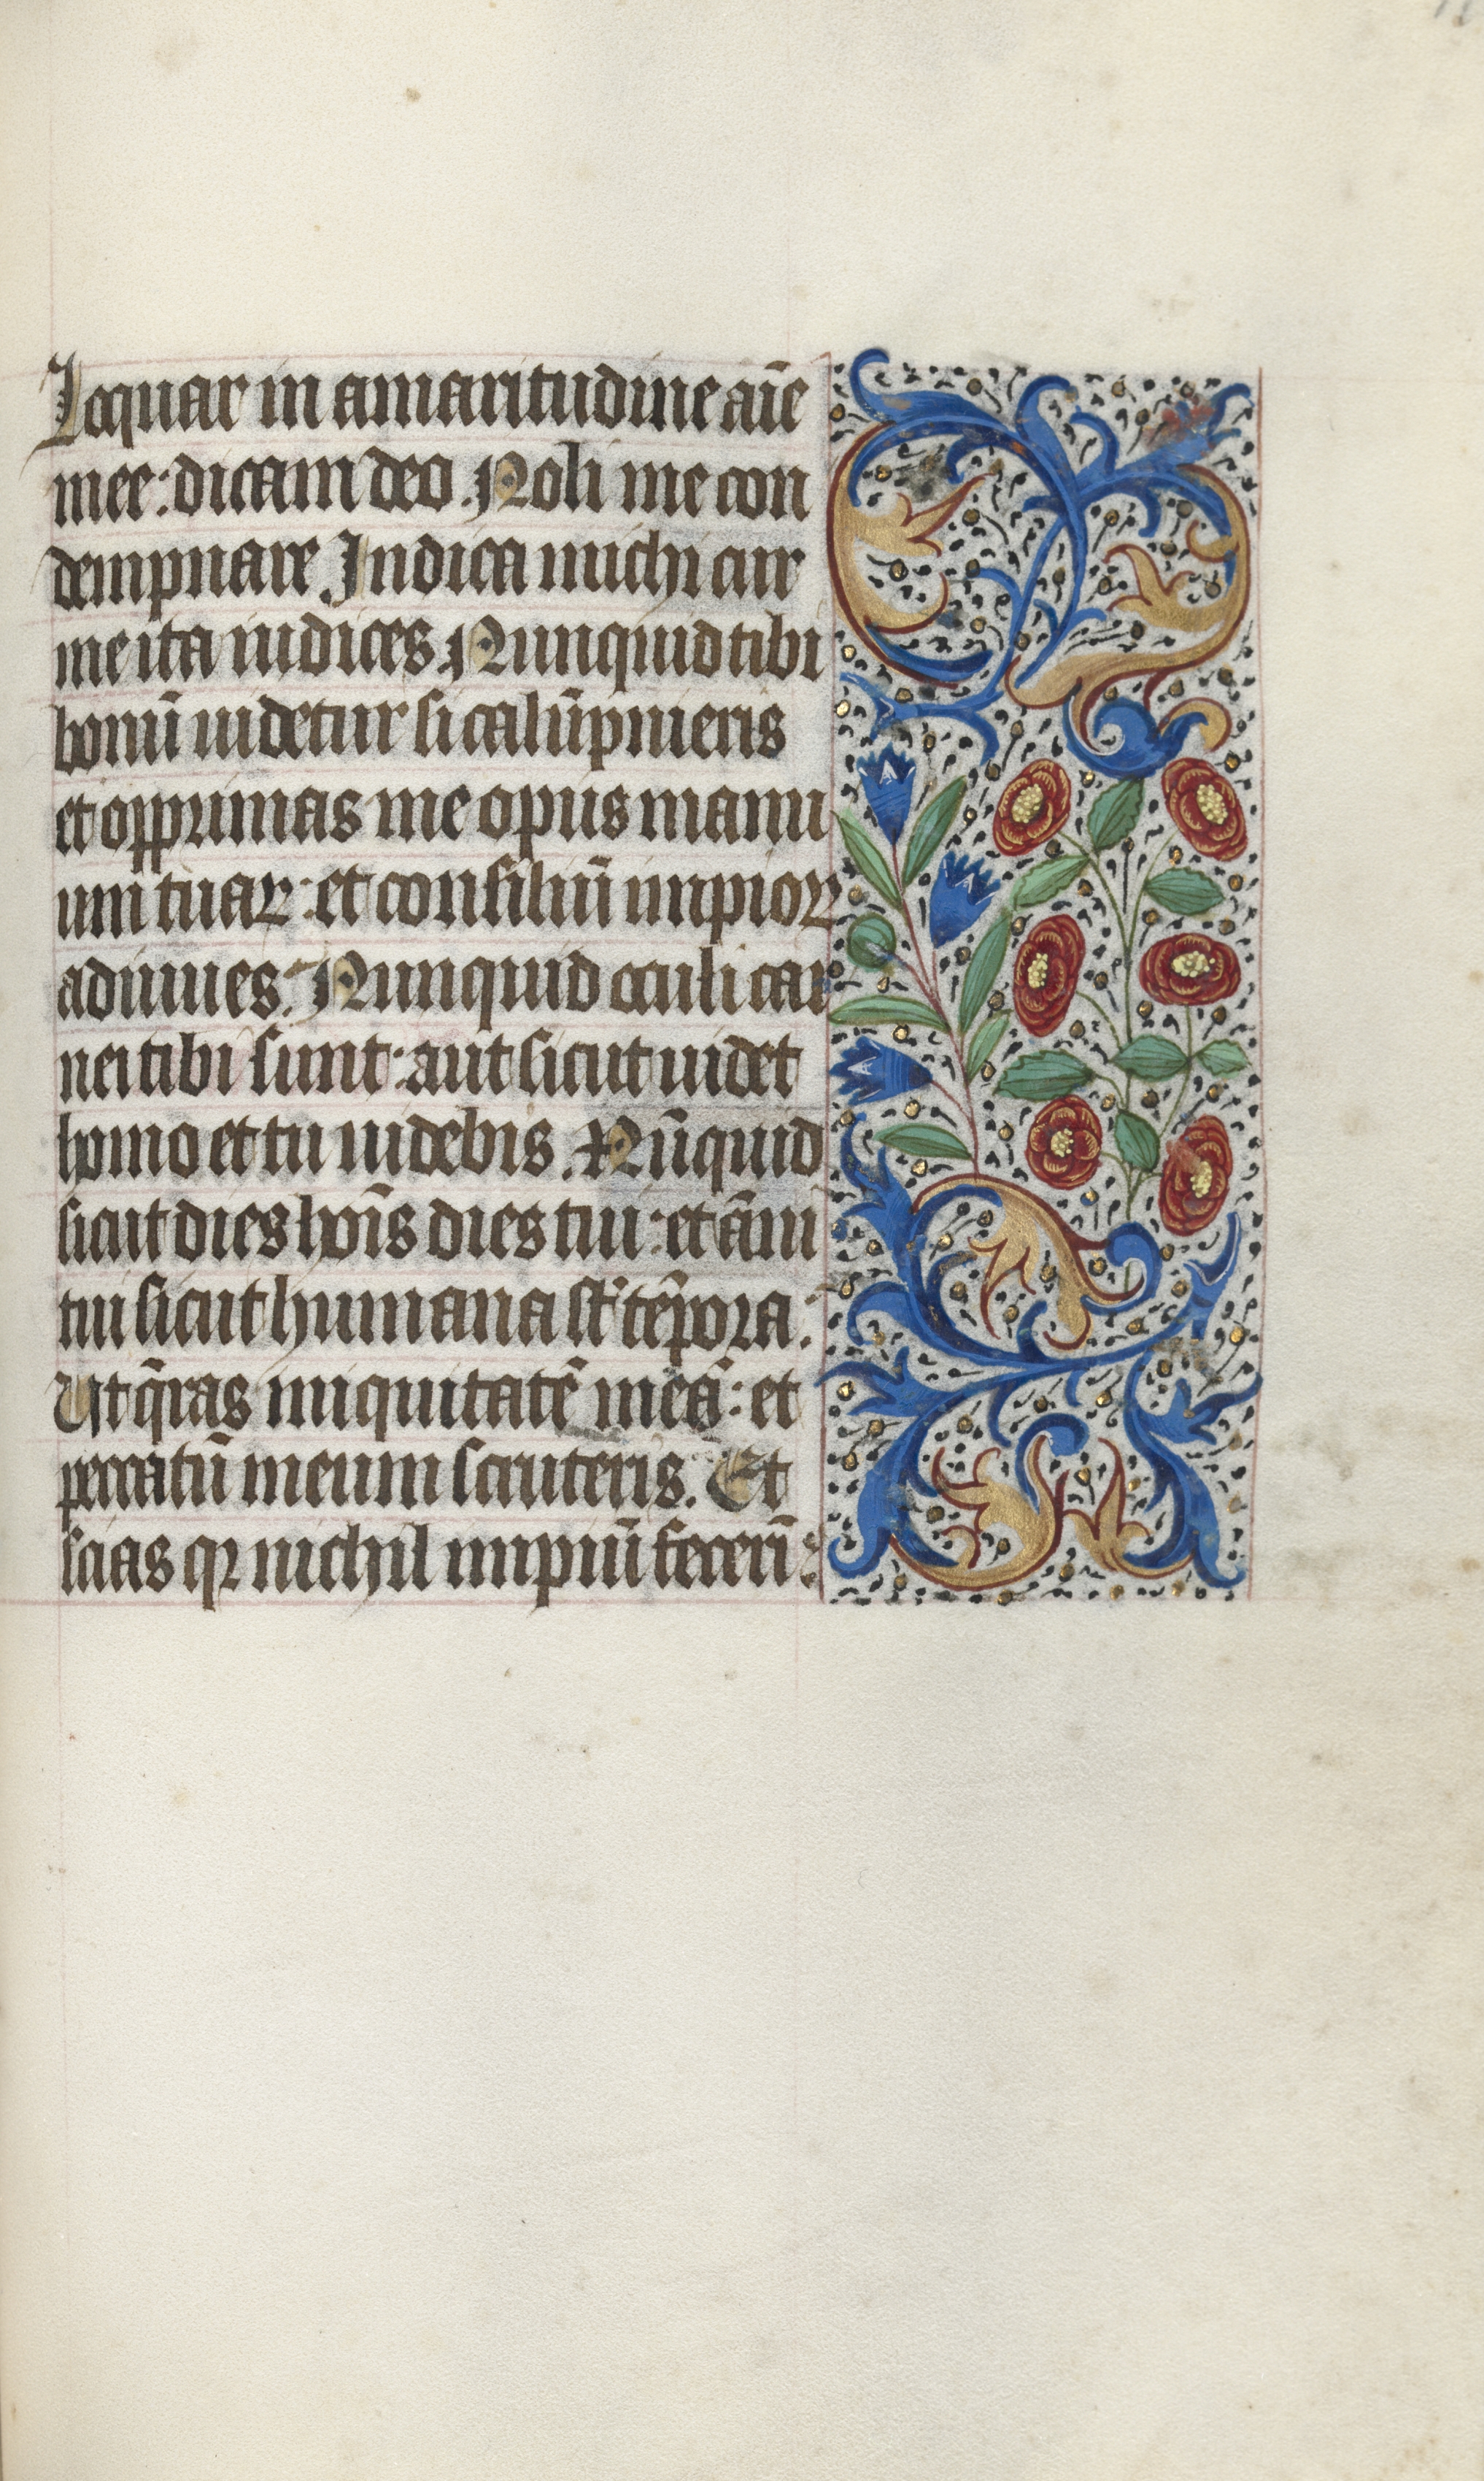 Loquar in amaritudine aīe
mee: dicam deo. Noli me con
dempnare Indica michi cur
me ita iudices. Nunquid tibi
bonū uidetur si calūpnieris
et opprimas me opus manu
um tuaꝝ: et consiliū impioꝝ
adiuues. Nunquid oculi car
nei tibi sunt: aut sicut uidet
homo et tu uidebis. Nūquid
sicut dies hoīs dies tui: et āni
tui sicut humana st̄ tēpora:
Ut q̄ras iniquitatē meā: et
peccatū meum scruteris. Et
scias qꝛ nichil impiū fecerī: